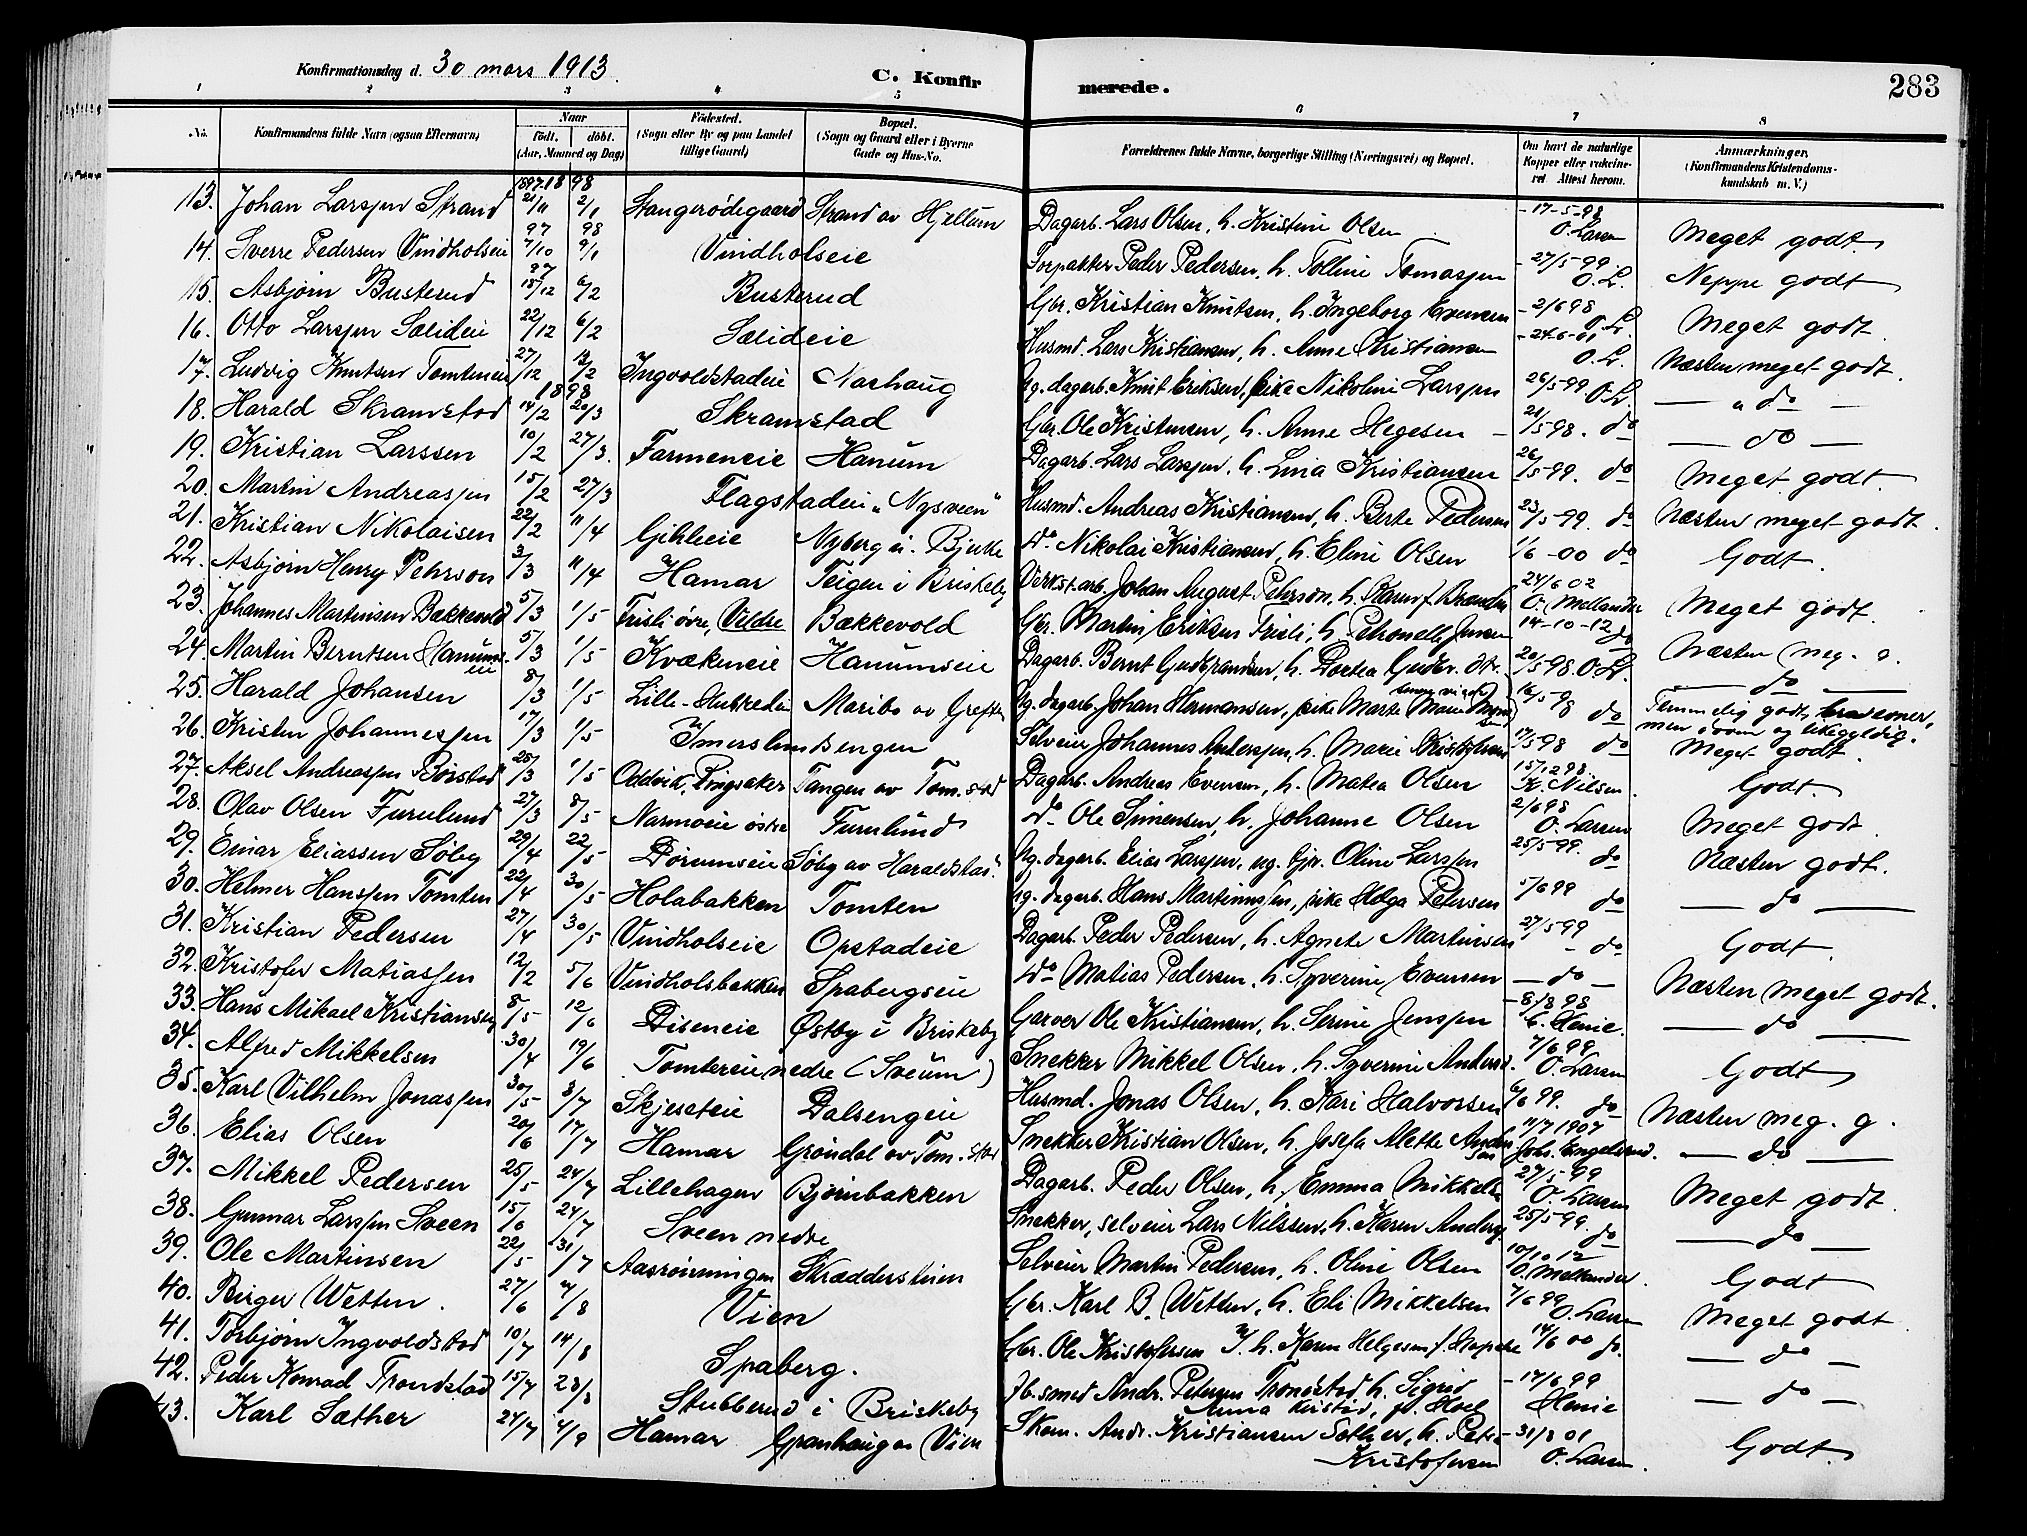 Konfirmationsdag d. 30 mars 1913. C. Konfirmerede. 283
1 2 3 4 5 6 7 8
No. Konfirmandens fulde Navn (ogsaa Efternavn) Naar født. døbt. (Aar, Maaned og Dag) Fødested. (Sogn eller By og paa Landet tillige Gaard) Bopæl. (Sogn og Gaard eller i Byerne Gade og Hus-No. Forældrenes fulde Navne, borgerlige Stilling (Næringsvei) og Bopæl. Om havt de naturlige Kopper eller vakcineret Attest herom. Anmærkninger. (Konfirmandens Kristendomskundskab m. V.)
13. Johan Larssen Strand 1897 1898 2/1 Stangerødegaard Strand av Hjellum Dagarb. Lars Olsen, h. Kristine Olsen 17-5-98 O. Larsen Meget godt
14. Sverre Pedersen Vindholseie 97 7/10 98 9/1 Vindholseie Peder Pedersen, h. Tolline Tomassen 27/5-99 O.L. Neppe godt
15. Asbjørn Busterud 97 18/12 6/2 Busterud Gbr. Kristian Knutsen, h. Ingeborg Evensen 2/6 98 O.L. Meget godt.
16. Otto Larssen Sælideie 22/12 6/2 Sælideie Husmd. Lars Kristiansen, h. Anne Kristiansen 24-6-01 O.L. Næsten meget godt.
17. Ludvig Knutsen Tomteneie 27/12 13/2 Ingvoldstadeie Nashaug Ug. dagarb. Knut Eriksen, pike Nikoline Larssen 26/5-99 O.L. — " do —
18. Harald Skramstad 1898 14/2 20/3 Skramstad Gbr. Ole Kristensen, h. Anne Hegesen 21/5 98. do — do —
19. Kristian Larssen 10/2 27/3. Farmeneie Hanum Dagarb. Lars Larssen, h. Lina Kristiansen 26/5-99. do Meget godt.
20. Martin Andreassen 15/2 27/3 Flagstadeie „Nysveen" Husmd. Andreas Kristiansen, h. Berte Pedersen 23/5-99. do Næsten meget godt.
21. Kristian Nikolaisen 22/2 11/4 Gihleeie Nyberg u. Bjerke do Nikolai Kristiansen, h. Eline Olsen 1/6-00 do Godt.
22. Asbjørn Henry Pehrson 3/3 11/4 Hamar Teigen i Briskeby Verkst.arb. Johan August Pehrson, h. Karen f. 24/6 02 O. Mellander Meget godt.
23. Johannes Martinsen Bækkevold 5/3 1/5 Fristi øvre, Veldre Bækkevold Gbr. Martin Eriksen Fristi, h. Petronelle Jensen 14-10-12 do Næsten meg. g.
24. Martin Berntsen Hanumseie 5/3 1/5 Kvækeneie Hanumseie Dagarb. Bernt Gudbrandsen, h. Dortea Gudbr. dtr. 20/5-98. O.L. — do —
25. Harald Johansen 8/3 1/5 Maribo av Greften Ug. dagarb. Johan Hermansen, pike Marte Marie 16/5-98 do Temmelig godt, men doven og likegyldig.
26. Kristen Johannessen 17/3 1/5 Imerslundsengen Selveier Johannes Anderssen, h. Marie Kristofersen 17/5 98 do Meget godt.
27. Aksel Andreassen Børstad 25/3 1/5 Oddvik, Ringsaker Tangen av Tom.stad Dagarb. Andreas Evensen, h. Matea Olsen 15/12 98 K. Nilsen. Godt.
28. Olav Olsen Furulund 27/3 8/5 Narmoeie østre Furulund do Ole Simensen, h. Johanne Olsen 2/6 98 O. Larsen Meget godt.
29. Einar Eliassen Søby 29/4 22/5 Dørumseie Søby av Haraldstad. Ug. dagarb. Elias Larssen, ug. Oline Larssen 25/5-99. do Næsten godt.
30. Helmer Hanssen Tomten 22/4 30/5 Holabakken Tomten ug. dagarb. Hans Martinussen, pike Helga Petersen 5/6 99 do — do —
31. Kristian Pedersen 27/4 30/5 Vindholseie Opstadeie Dagarb. Peder Pedersen, h. Agnete Martinsen 27/5 99 do Godt.
32. Kristofer Matiassen 12/2 5/6 Vindholsbakken Spabergseie do Matias Pedersen, h. Syverine Evensen — do — Næsten meget godt.
33. Hans Mikael Kristiansen 8/5 12/6 Diseneie Østby i Briskeby Garver Ole Kristiansen, h. Serine Jenssen 8/8 98 C. Henie. — do —
34. Alfred Mikkelsen 30/4 19/6 Tomtereie nedre (Sveum) Snekker Mikkel Olsen, h. Syverine Anders. 7/6 99 O. Larsen Godt
35. Karl Vilhelm Jonassen 30/5 3/7 Skjeseteie Dalsengeie Husmd. Jonas Olsen, h. Kari Halvorsen 6/6 99. do Næsten meg. g.
36. Elias Olsen 20/6 17/7 Hamar Grøndal av Tom.stad Snekker Kristian Olsen, h. Josefa Alette Andersen 11/7 1907 Johs. Engelsrud. — do —
37. Mikkel Pedersen 25/5 24/7 Lillehagen Bjørnbakken Dagarb. Peder Olsen, h. Emma Mikkelsen 27/5 99 O. Larsen Meget godt.
38. Gunnar Larssen Sveen 15/6 24/7 Sveen nedre Snekker, selveier Lars Nilssen, h. Karen Anders. 25/5-99. do — do —
39. Ole Martinsen 22/5 31/7 Aasrøinningen Skrædderstuen Selveier Martin Pedersen, h. Oline Olsen 10/10 12 O. Mellander. Godt
40. Birger Wetten. 27/6 7/8 Vien Gbr. Karl B. Wetten, h. Eli Mikkelsen 7/6 99 O. Larsen Meget godt
41. Torbjørn Ingvoldstad 10/7 14/8 Spaberg. Gbr. Ole Kristofersen I. h. Karen Helgesen f. 14/6 00 do. — do —
42. Peder Konrad Trondstad 15/7 28/8 Stubberud i Briskeby Jb.smed Andr. Petersen Tronestad h. Sigrid Anna 17/6 99 Henie — do —
43. Karl Sæther 24/7 4/9 Hamar Granhaug av Vien Skom. Andr. Kristiansen Sæther, h. Petra Kristofersen 31/8 01 O. Larsen. Godt